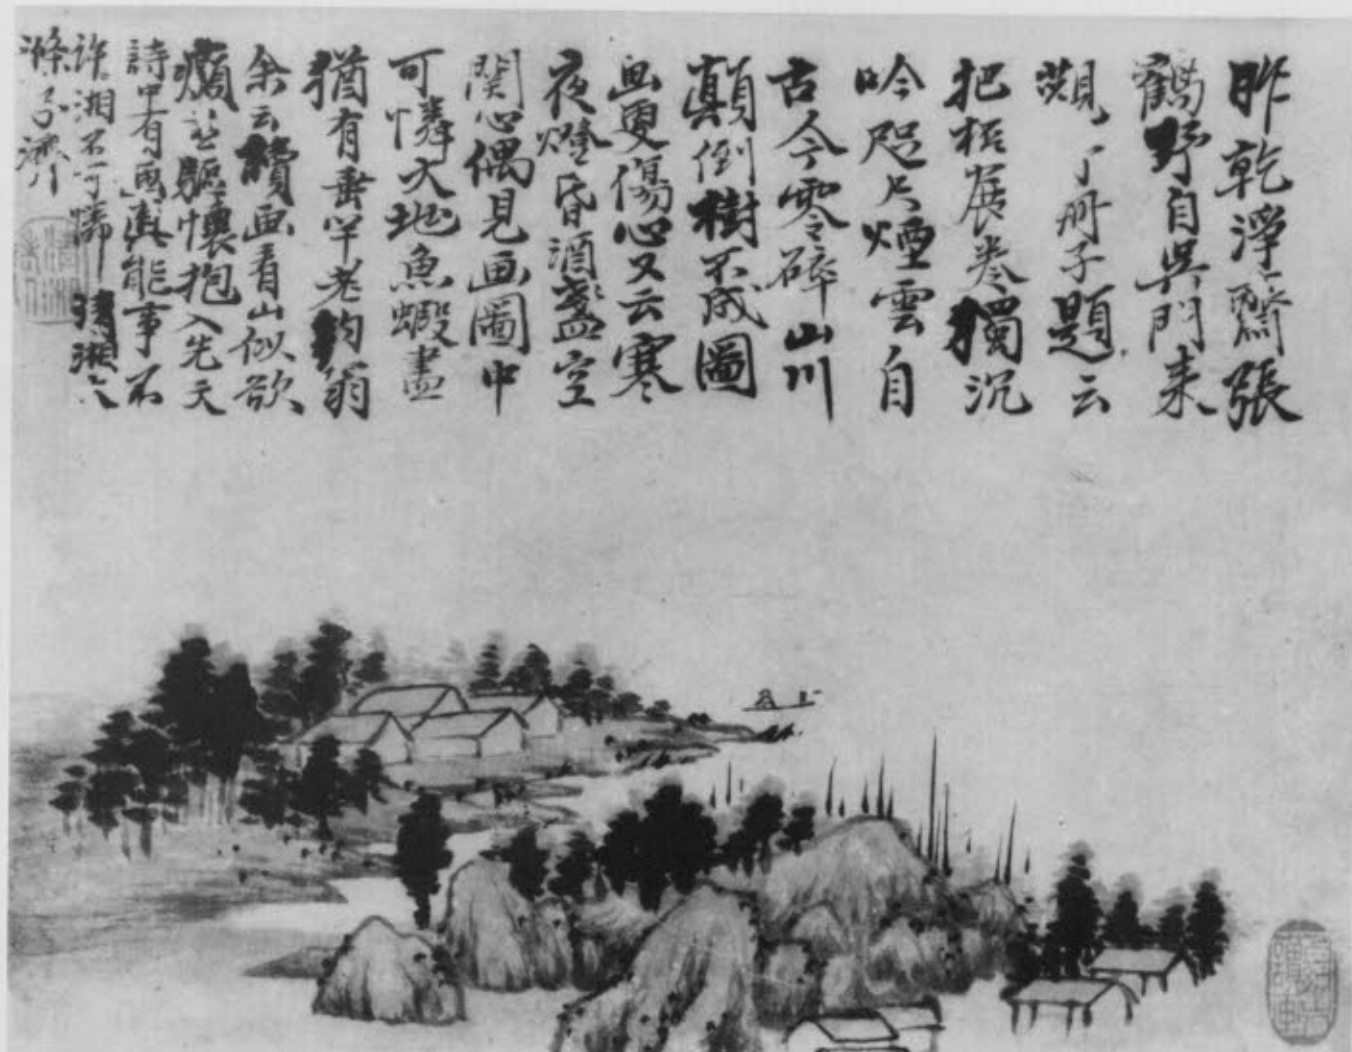 昨乾淨齋張
鶴野自吳門来
觀予冊子題云
把杯展卷獨沉
吟咫尺煙雲自
古今零碎山川
顛倒樹不成圖
画更傷心又云寒
夜燈昏酒盞空
関心偶見画圖中
可憐大地魚蝦盡
猶有垂竿老釣翁
余云讀画看山似欲
癲盡驅懷抱入先天
詩中有画真能事不
許湘不可憐 清湘大
滌子濟